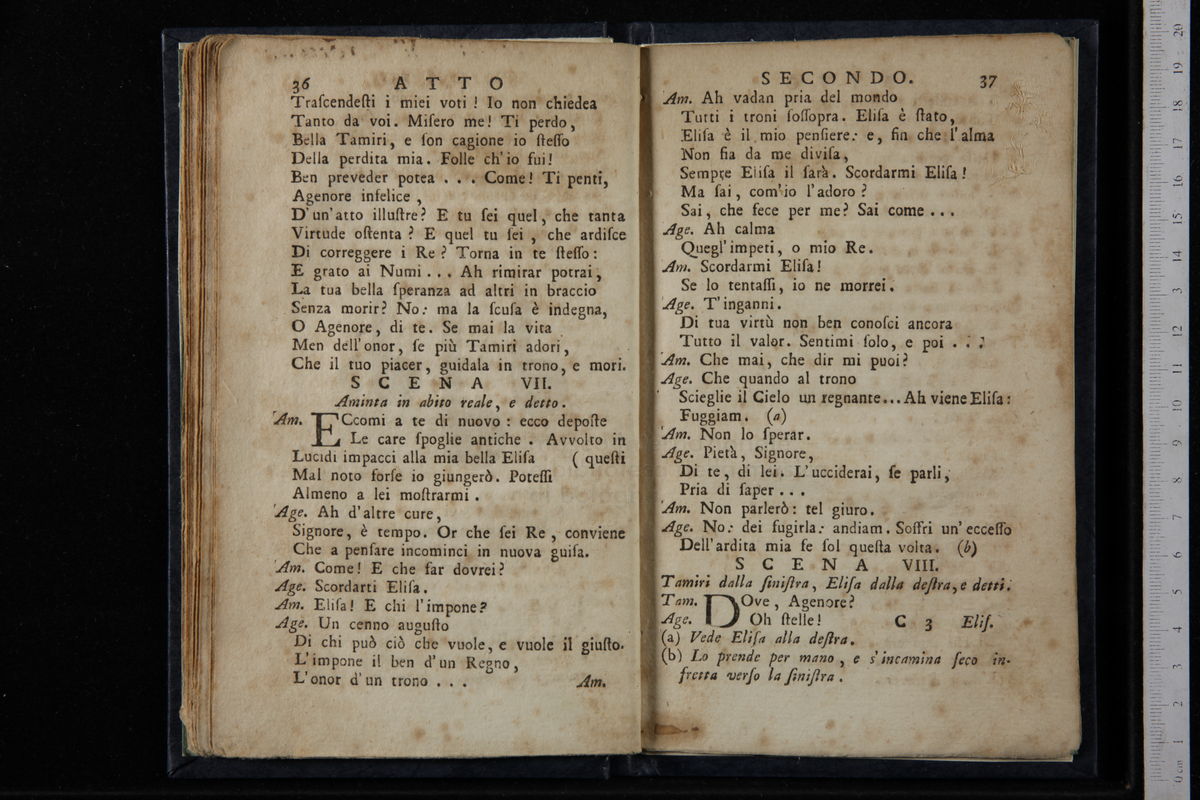 36 ATTO
Traſcendeſti i miei voti ! Io non chiedea
Tanto da voi. Miſero me! Ti perdo,
Bella Tamiri, e ſon cagione io ſteſſo
Della perdita mia. Folle ch'io fui!
Ben preveder potea . . . Come! Ti penti,
Agenore infelice ,
D'un'atto illuſtre? E tu ſei quel, che tanta
Virtude oſtenta ? E quel tu ſei , che ardiſce
Di correggere i Re ? Torna in te ſteſſo:
E grato ai Numi . . . Ah rimirar potrai,
La tua bella ſperanza ad altri in braccio
Senza morir? No: ma la ſcuſa è indegna,
O Agenore, di te. Se mai la vita
Men dell'onor, ſe più Tamiri adori,
Che il tuo piacer, guidala in trono, e mori.
SCENA VII.
Aminta in abito reale, e detto.
Am. ECcomi a te di nuovo : ecco depoſte
Le care ſpoglie antiche . Avvolto in
Lucidi impacci alla mia bella Eliſa ( queſti
Mal noto forſe io giungerò. Poteſſi
Almeno a lei moſtrarmi .
Age. Ah d'altre cure,
Signore, è tempo. Or che ſei Re , conviene
Che a penſare incominci in nuova guiſa.
Am. Come! E che far dovrei?
Age. Scordarti Eliſa.
Am. Eliſa! E chi l'impone?
Age. Un cenno auguſto
Di chi può ciò che vuole, e vuole il giuſto.
L'impone il ben d'un Regno,
L'onor d'un trono . . . Am.
SECONDO. 37
Am. Ah vadan pria del mondo
Tutti i troni ſoſſopra. Eliſa è ſtato,
Eliſa è il mio penſiere: e, fin che l'alma
Non ſia da me diviſa,
Sempre Eliſa il ſarà. Scordarmi Eliſa!
Ma ſai, com'io l'adoro ?
Sai, che fece per me? Sai come . . .
Age. Ah calma
Quegl'impeti, o mio Re.
Am. Scordarmi Eliſa!
Se lo tentaſſi, io ne morrei.
Age. T'inganni.
Di tua virtù non ben conoſci ancora
Tutto il valor. Sentimi ſolo, e poi . . .
Am. Che mai, che dir mi puoi?
Age. Che quando al trono
Scieglie il Cielo un regnante... Ah viene Eliſa:
Fuggiam. (a)
Am. Non lo ſperar.
Age. Pietà, Signore,
Di te, di lei. L'ucciderai, ſe parli,
Pria di ſaper . . .
Am. Non parlerò: tel giuro.
Age. No: dei fugirla: andiam. Soffri un'ecceſſo
Dell'ardita mia fe ſol queſta volta. (b)
SCENA VIII.
Tamiri dalla ſiniſtra, Eliſa dalla deſtra, e detti.
Tam. DOve, Agenore?
Age. Oh ſtelle! C 3 Eliſ.
(a) Vede Eliſa alla deſtra.
(b) Lo prende per mano , e s'incamina ſeco in-
fretta verſo la ſiniſtra .